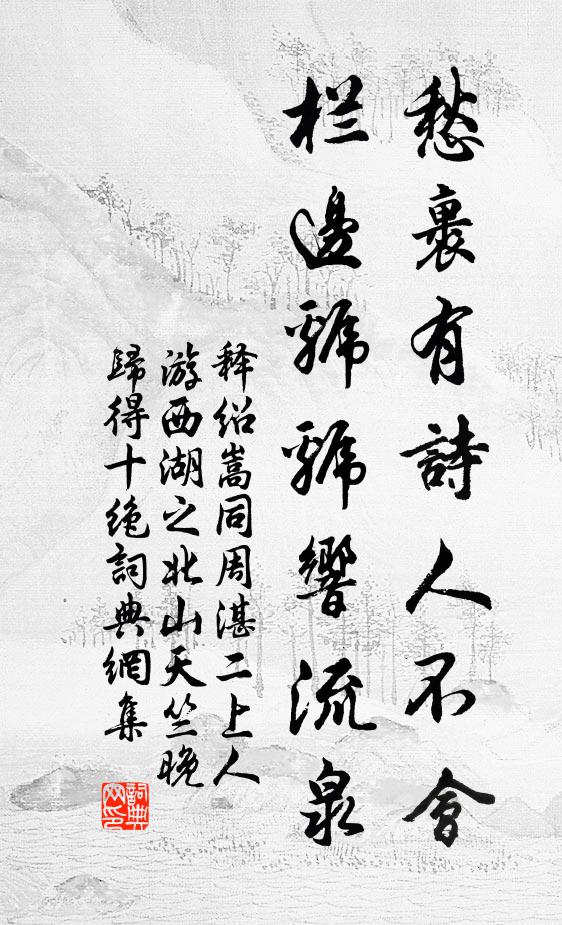 愁裏有詩人不會
栏邊號號響流泉
释绍嵩同周湛二上人
游西湖之北山天竺晚
歸得十绝詞典網集
詞典
网印